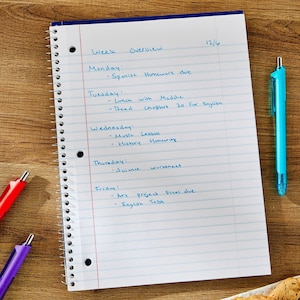 Week Overview 12/6
Monday:
- Spanish Homework due
Tuesday:
- Lunch with Maddie
- Read Chapters 20 for English
Wednesday:
- Music Lesson
- History Homework
Thursday:
- Science worksheet
Friday:
- Art project Final due
- English Test